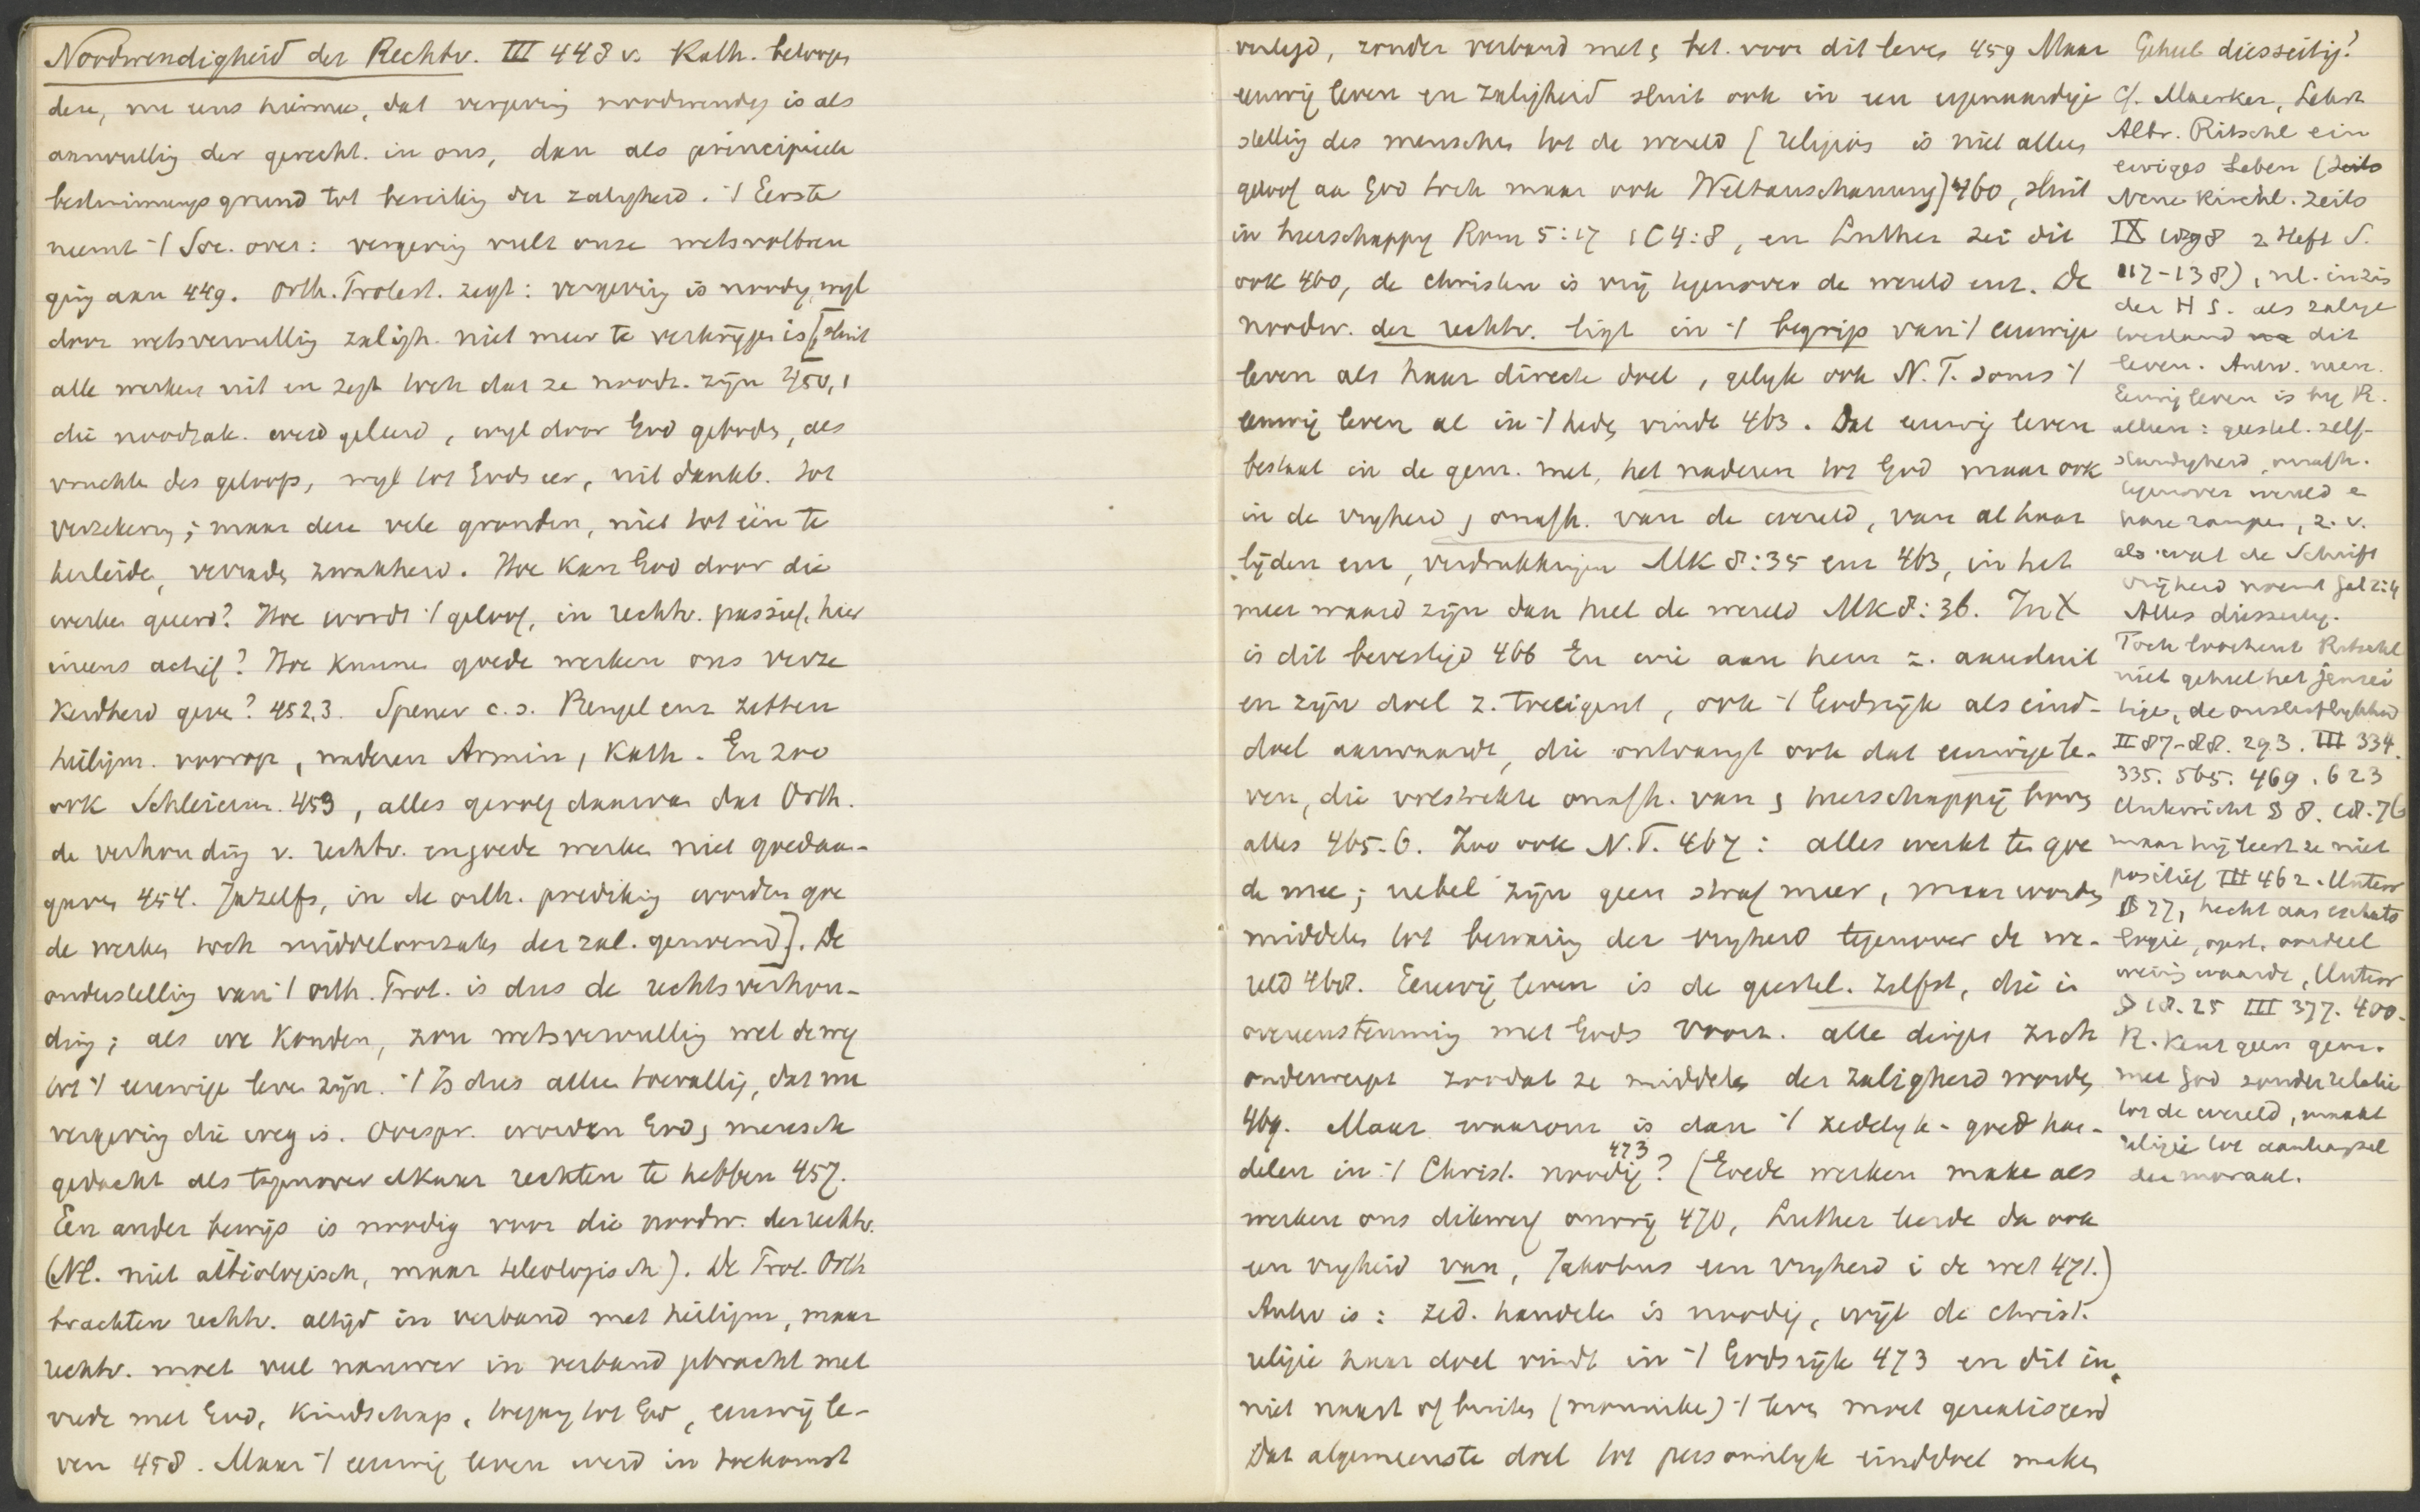 Noodwendigheid der Rechtv. III 448 v. Kath. betoogen
deze, me eens hiermee, dat vergeving noodwendig is als
aanvulling der gerecht. in ons, dan als principieele
bestimmungsgrund tot bereiking der zaligheid. 't Eerste
neemt 't Soc. over: vergeving vult onze wetsvolbren
ging aan 449. Orth. Protest. zegt: vergeving is noodig, wyl
door wetsvervulling zaligh. niet meer te verkrijgen is [sluit
alle werken uit en zegt toch dat ze noodz. zijn? 450,1
die noodzak. werd geleerd, wyl door God geboden, als
vruchten des geloofs, wyl tot Gods eer, uit dankb. tot
verzekering; maar deze vele gronden, niet tot één te
herleiden, verraden zwakheid. Hoe kan God door die
werken geeerd? Hoe wordt 't geloof, in rechtv. passief, hier
ineens actief? Hoe kunnen goede werken ons verze
kerdheid geven? 452,3. Spener c.s. Bengel enz zetten
heiligm. voorop, naderen Armin, Kath. En zoo
ook Schleierm. 453, alles gevolg daarvan dat Orth.
de verhouding v. rechtv. en goede werken niet goed aan-
gaven 454. Ja zelfs, in de orth. prediking worden goe
de werken toch middeloorzaken der zal. genoemd]. De
onderstelling van 't orth. Prot. is dus de rechtsverhou-
ding; als we konden, zou wetsvervulling wel de weg
tot 't eeuwige leven zijn. 't Is dus alleen toevallig, dat nu
vergeving die weg is. Oorspr. worden God, mensch
gedacht als tegenover elkaar rechten te hebben 457.
Een ander bewijs is noodig voor die noodw. der rechtv.
(Nl. niet aitiologisch, maar teleologisch). De Prot. Orth
brachten rechtv. altijd in verband met heiligm, maar
rechtv. moet veel nauwer in verband gebracht met
vrede met God, kindschap, toegang tot God, eeuwig le-
ven 458. Maar 't eeuwig leven werd in toekomst
verlegd, zonder verband met bet. voor dit leven 459 Maar
eeuwig leven en zaligheid sluit ook in een eigenaardige
stelling des menschen tot de wereld (religion is niet alleen
geloof aan God toch maar ook Weltanschauung) 460, sluit
in heerschappy Rom 5:17 1C4:8, en Luther zei dit
ook 460, de christen is vrij tegenover de wereld enz. De
noodw. der rechtv. ligt in 't begrip van 't eeuwige
leven als haar directe doel, gelyk ook N.T. soms 't
eeuwig leven al in 't heden vindt 463. Dat eeuwig leven
bestaat in de gem. met, het naderen tot God maar ook
in de vryheid, onafh. van de wereld, van al haar
lijden enz, verdrukkingen MK 8:35 enz 463, in het
meer waard zijn dan heel de wereld MK 8:36. In X
is dit bevestigd 466 En wie aan hem z. aansluit
en zijn doel z. toeeigent, ook 't Godsrijk als eind-
doel aanvaardt, die ontvangt ook dat eeuwige le-
ven, die volstrekte onafh. van, heerschappij boven
alles 465-6. Zoo ook N.T. 467: alles werkt ten goe
de mee; uebel zijn geen straf meer, maar worden
middelen tot bewaring der vryheid tegenover de we-
reld 468. Eeuwig leven is de geestel. zelfst, die in
overeenstemming met Gods voorz. alle dingen zich
onderwerpt zoodat ze middelen der zaligheid worden
469. Maar waarom is dan 't zedelyk-goed han-
473
delen in 't Christ. noodig? (Goede werken maken als
werken ons dikwerf onvrij 470, Luther leerde dan ook
een vryheid van, Jakobus een vryheid i de wet 471.)
Antw is: zed. handelen is noodig, wijl de christ.
religie haar doel vindt in 't Godsrijk 473 en dit in,
niet naast of buiten (monniken) 't leven moet gerealiseerd
Dat algemeenste doel tot persoonlyk einddoel maken
Geheel diesseitig?
Cf. Maerker, Lehrt
Albr. Ritschl ein
ewiges Leben (Zeits
Neue Kirchl. Zeits
IX 1898 2 Heft S.
117-138), nl. in zin
der H S. als zalige
toestand na dit
leven. Antw. neen.
Eeuwig leven is by R.
alleen: geestel. zelf-
standigheid, onafh.
tegenover wereld e
hare rampen, z. v.
als wat de Schrift
vrijheid noemt Gal 2:4
Alles diesseitig.
Toch loochent Ritschl
niet geheel het jensei
tige, de onsterflykheid
II 87-88. 293. III 334.
335. 565. 469. 623
Unterricht § 8. 18. 76
maar hij leert ze niet
positief III 462. Unterr
§ 77, hecht aan eschato
logie, opst, oordeel
weinig waarde, Unterr
§ 18. 25 III 377. 400.
R. kent geen gem.
met God zonder relatie
tot de wereld, maakt
religie tot aanhangsel
der moraal.